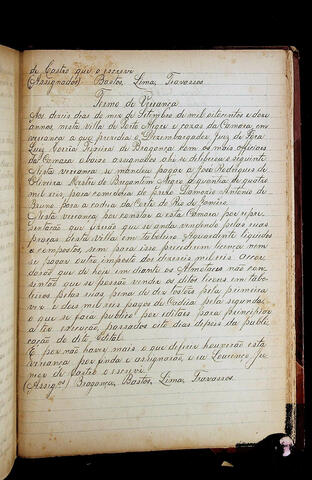 de Castro que o escrevi
(Assignados) Bastos, Lima, Travassos.
Termo de Vriança
Aos deseis dias do mez de Setembro de mil oitocentos e doze
annos, nesta villa de Porto Alegre e cazas da Camara em
vereança a que presidia o Dezembargador Juiz de Fora
Luiz Corrêa Teixeira de Bragança com os mais officiaes
da Camara abaixo assignados ahi se deliberou o seguinte
Nesta vereança se mandou pagar a José Rodrigues de
Oliveira Mestre do Bergantim Alegre a quantia de quatro
mil reis, para comedoria do prezo Domingos Antonio de
Bruno para a cadêa da Corte do Rio de Janeiro.
Nesta vereança por constar a esta Camara por repre-
sentação que varias que se anda vendendo pelas ruas
praças desta Villa em taboleiro Aguardente liquidos
e compostos, sem para isso precedirem licença nem
se pagar outro imposto dos doze mil reis
darão que de hoje em diante os Almotaces não con-
sintão que se possão vender os ditos licores em tabo-
leiros pelas ruas pena de dez tostões pela primeira
vez e dois mil reis pagos da Cadêa pela segunda
o que se fara publico por editaes para principiar
a ter execução, passados oito dias depois da publi-
cação do dito Edital.
E por não haver mais o que deferir houverão esta
vriança por finda e assignarão, e eu Lourenço Ju-
nior de Castro o escrevi
(Assig.os) Bragança, Bastos, Lima, Travassos.